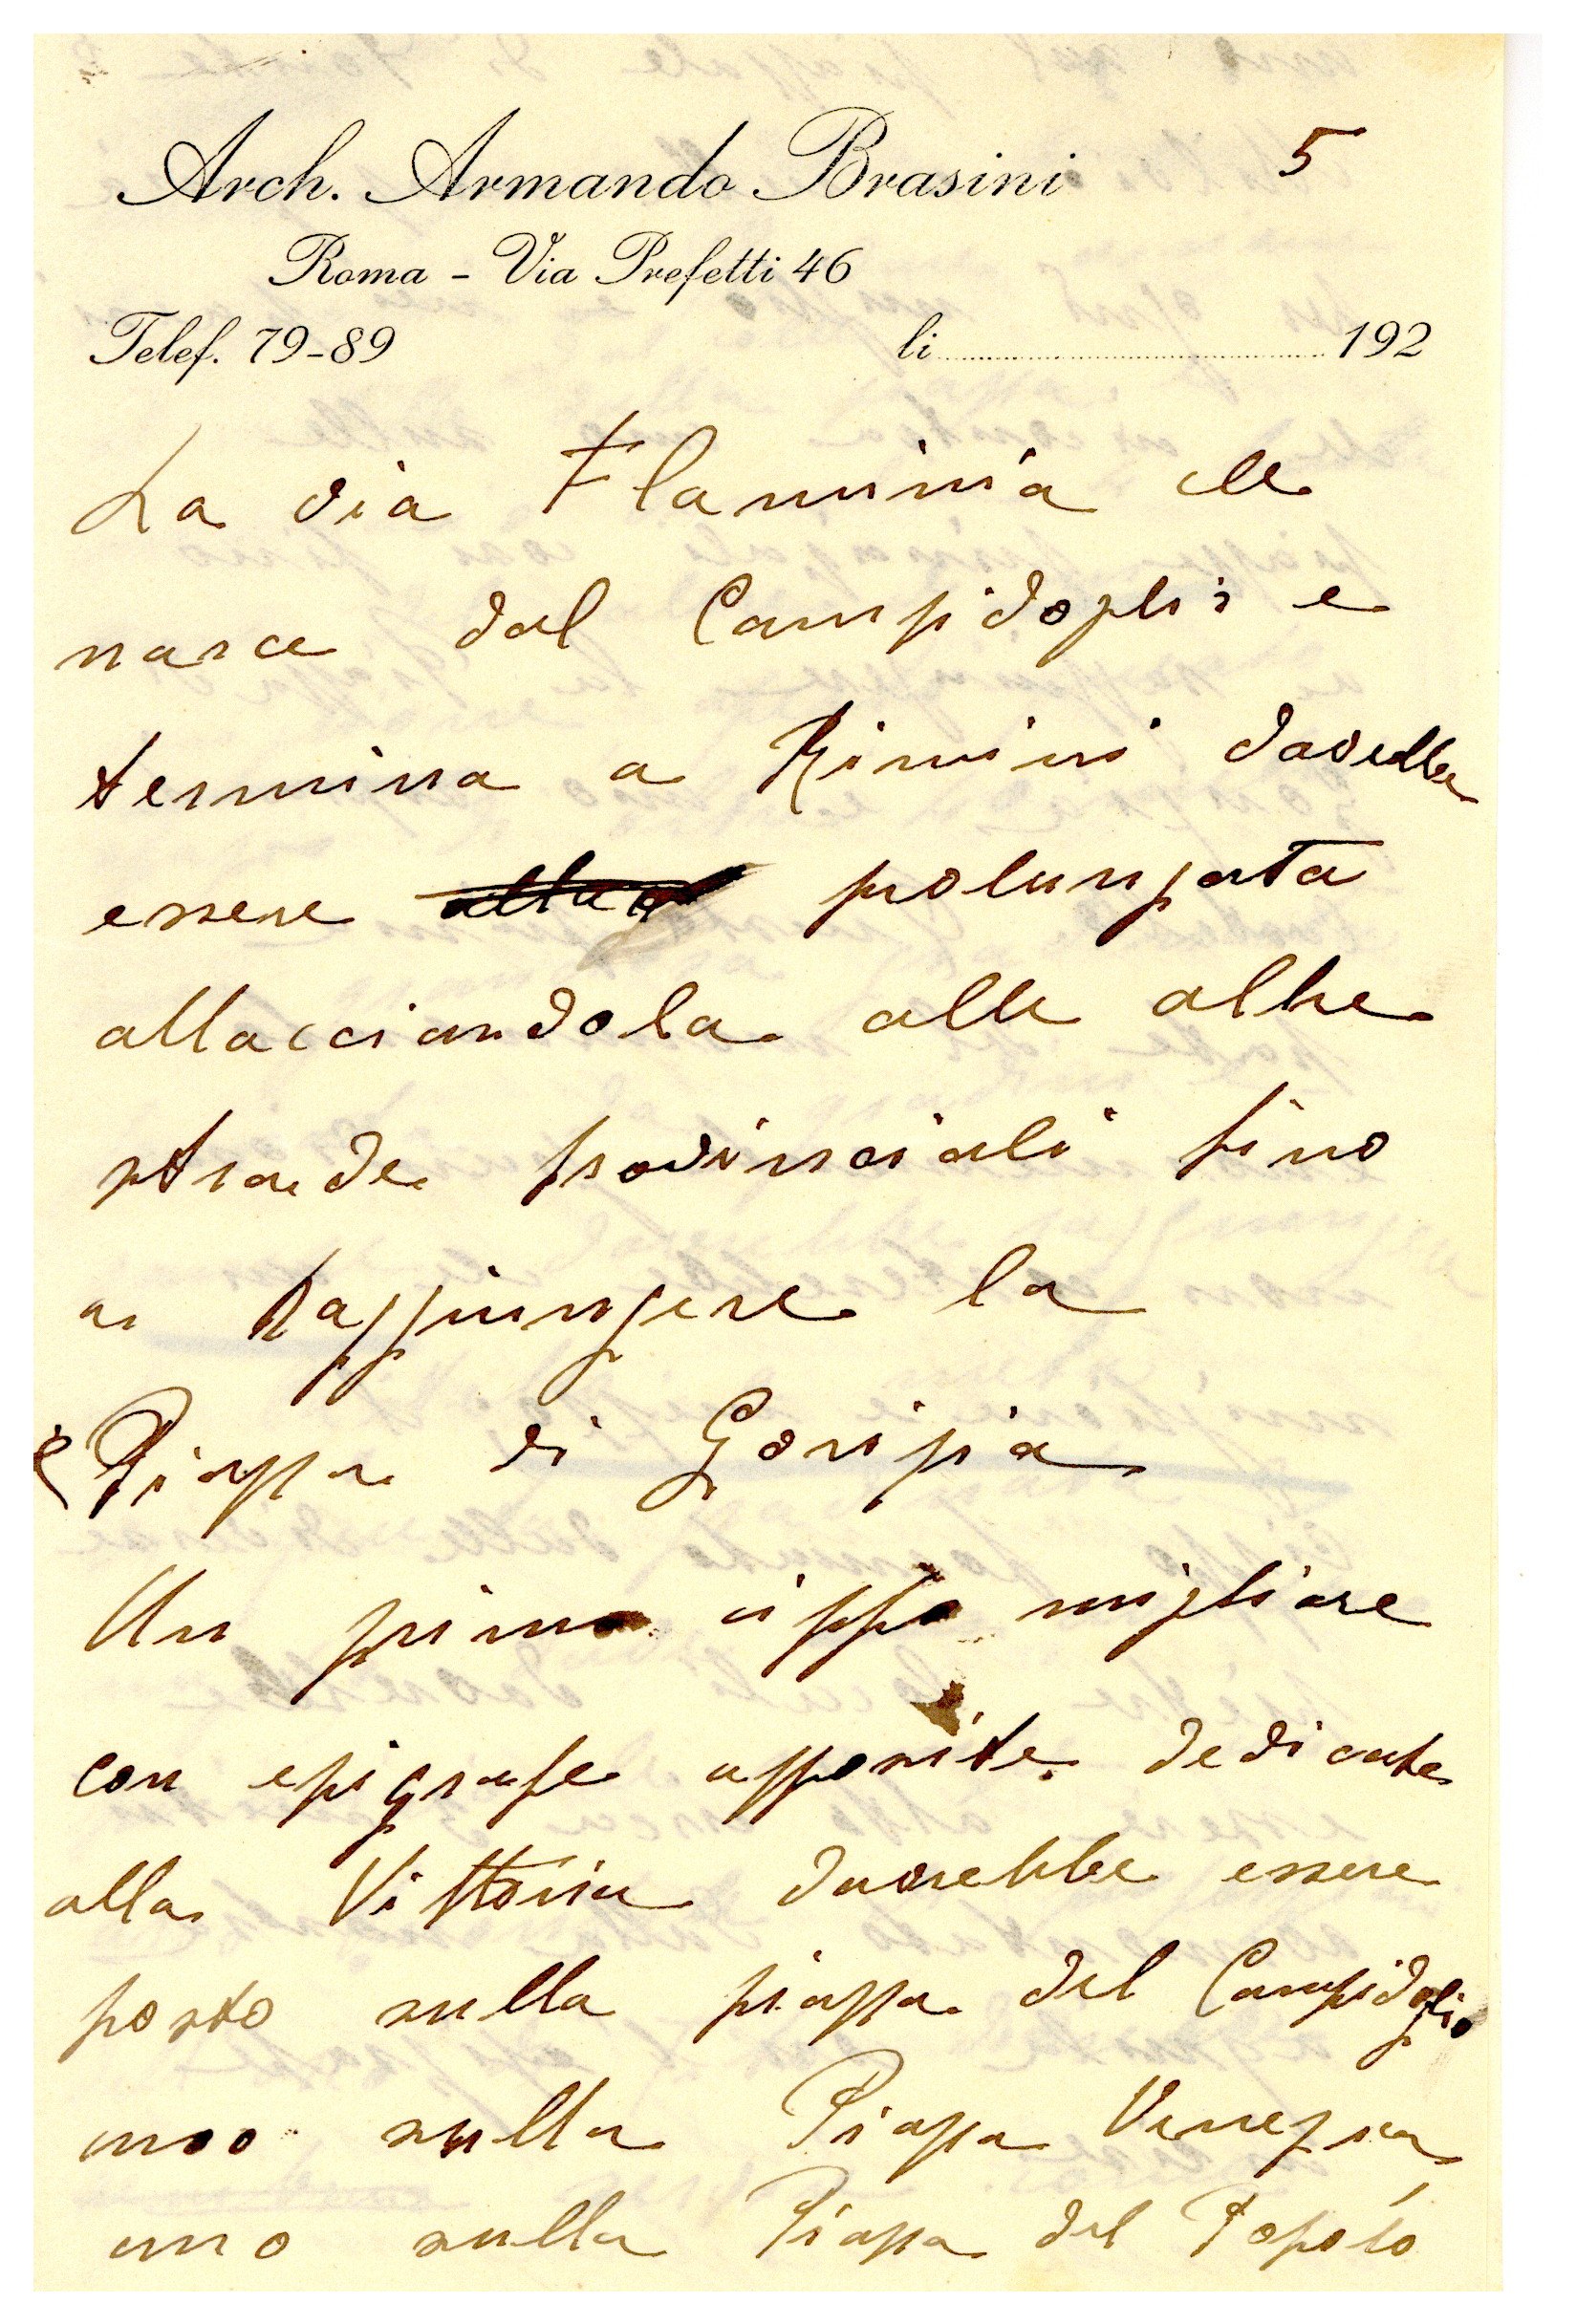 Arch. Armando Brasini
5
Roma - Via Prefetti 46
Telef. 79-89
li 192
La via Flaminia che
nasce dal Campidoglio e
termina a Rimini dovrebbe
essere prolungata
allacciandola alle altre
strade provinciali fino
a raggiungere la
Piazza di Gorizia
Un primo cippo migliare
con epigrafe apposite dedicate
alla Vittoria dovrebbe essere
posto sulla piazza del Campidoglio
uno sulla Piazza Venezia
uno sulla Piazza del Popolo